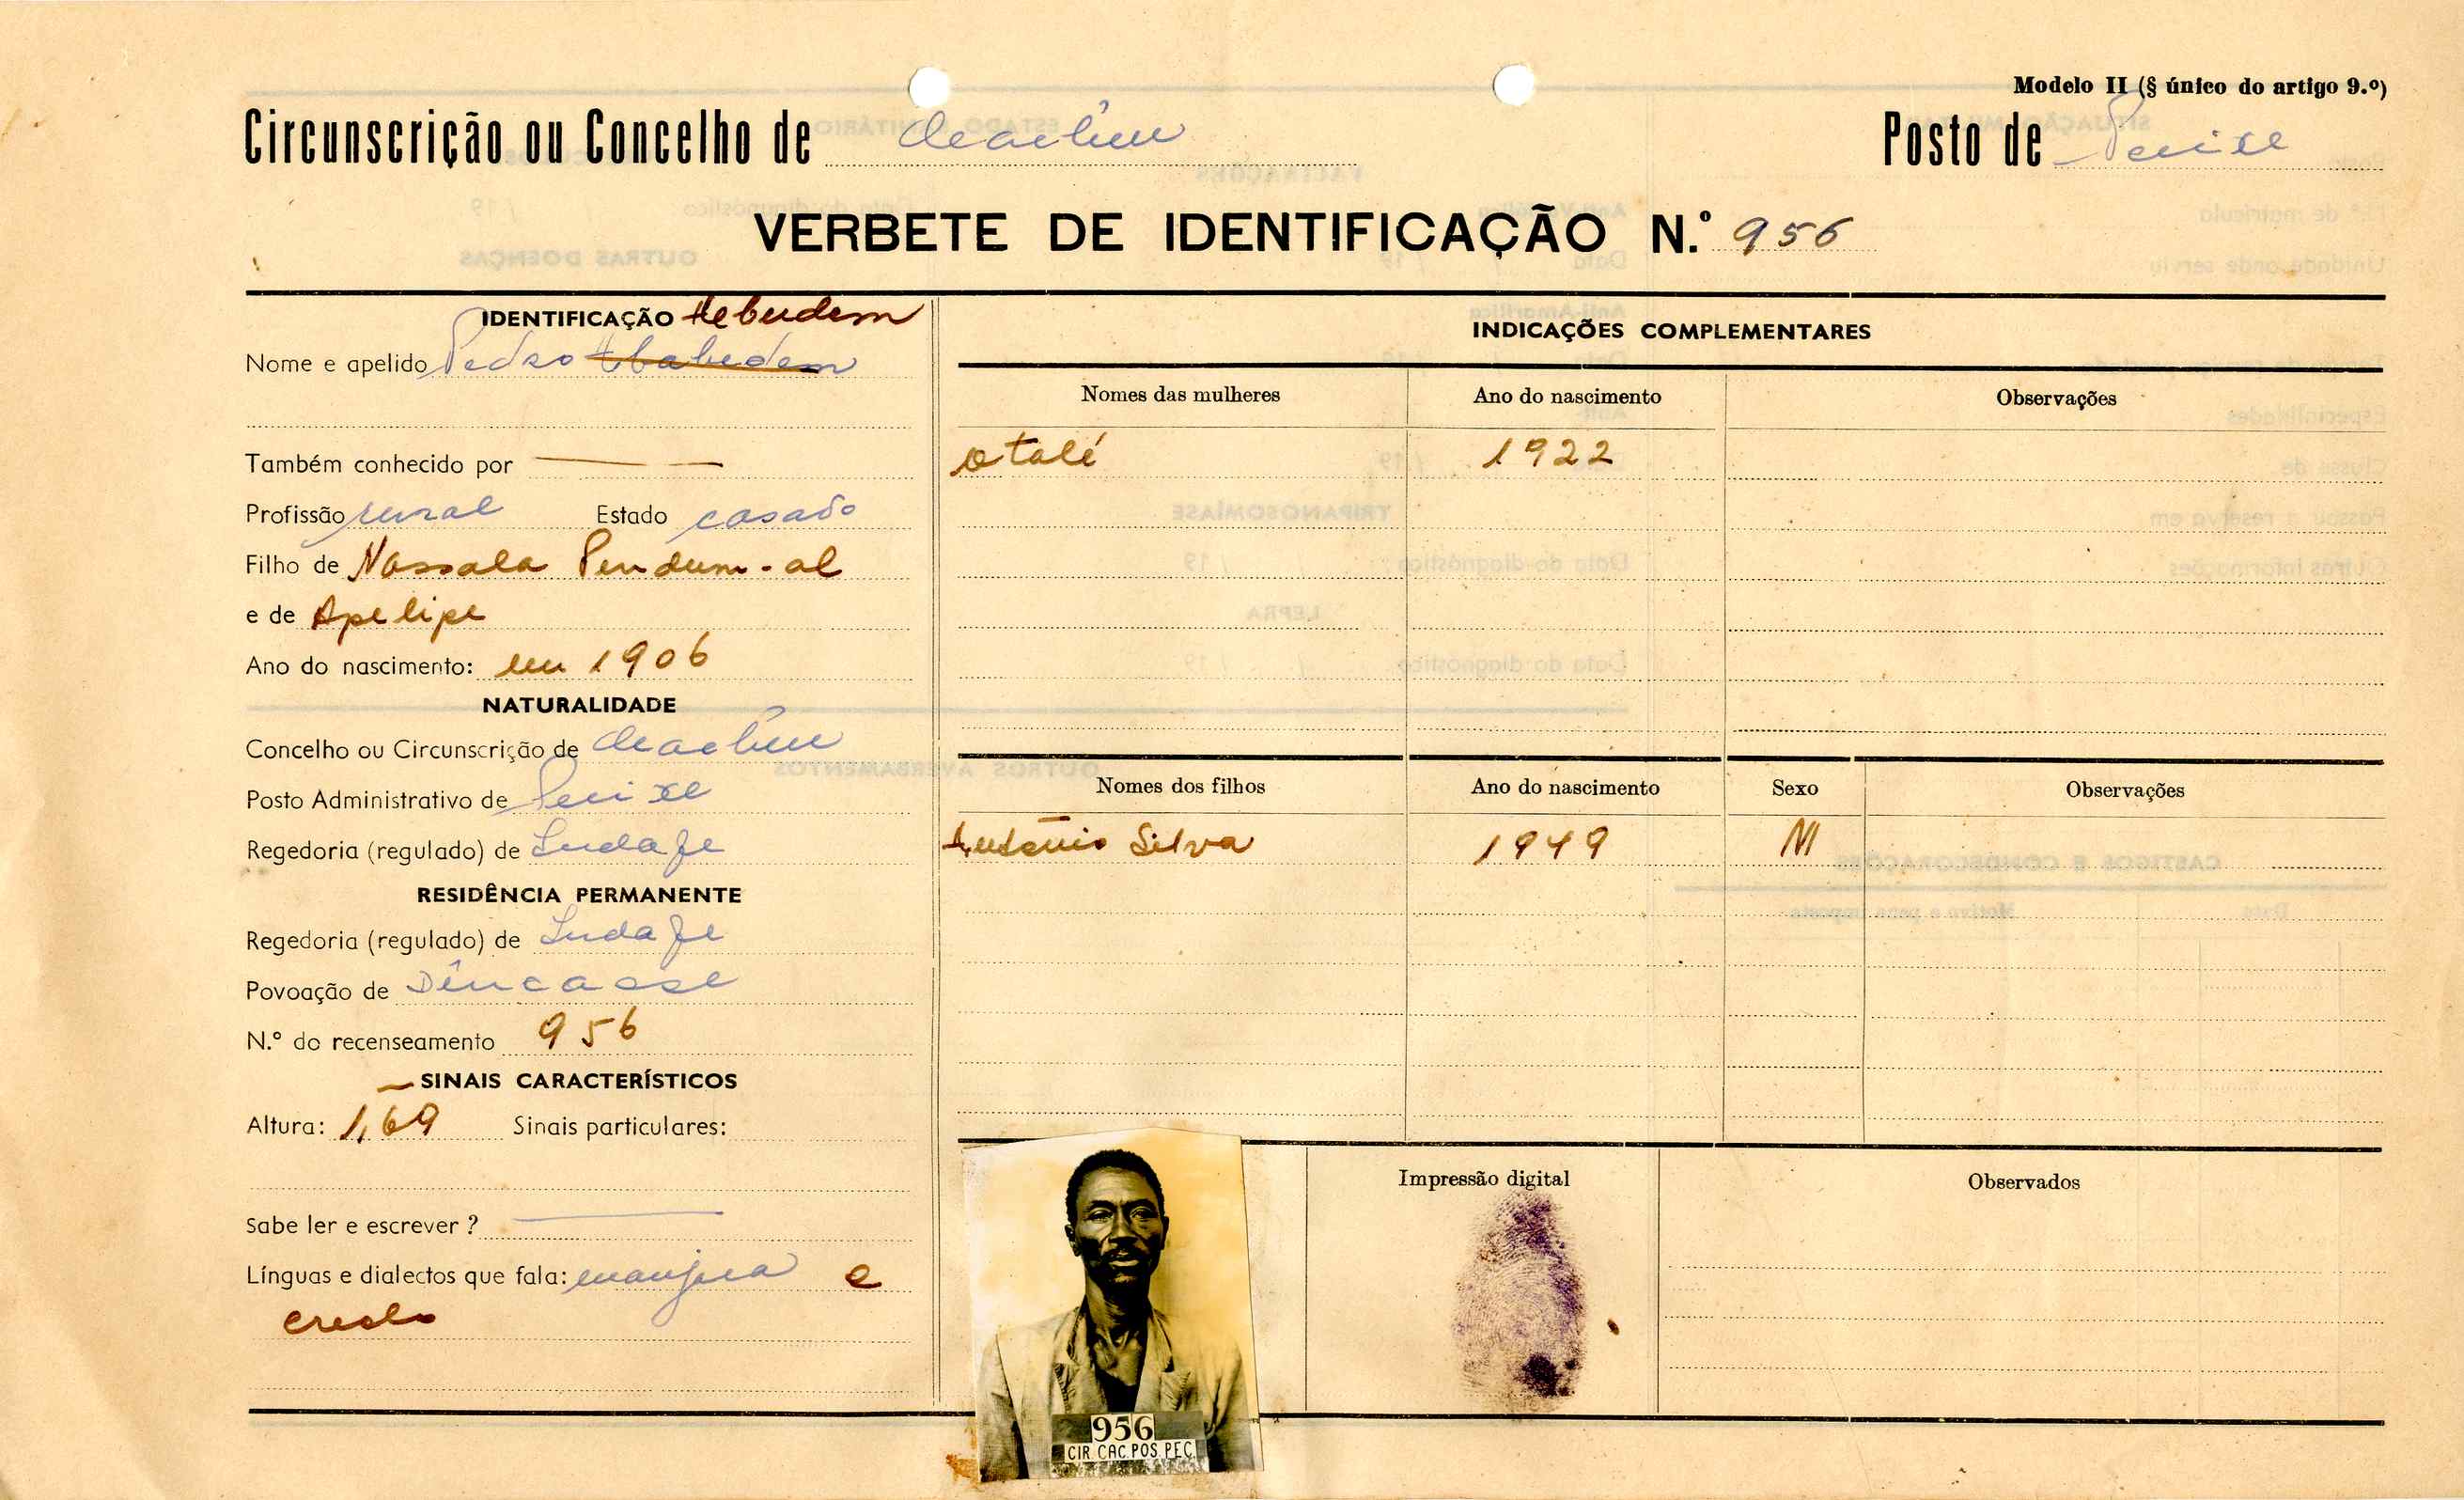 Modelo II (§ único do artigo 9.º)
Circunscrição ou Concelho de Cacheu
Posto de Pecixe
VERBETE DE IDENTIFICAÇÃO N.º 956
IDENTIFICAÇÃO
Nome e apelido Pedro
Também conhecido por
Profissão rural Estado casado
Filho de Nassala Pendum-al
e de Apelipe
Ano do nascimento: em 1906
NATURALIDADE
Concelho ou Circunscrição de Cacheu
Posto Administrativo de Pecixe
Regedoria (regulado) de
RESIDÊNCIA PERMANENTE
Regedoria (regulado) de
Povoação de
N.º do recenseamento 956
SINAIS CARACTERÍSTICOS
Altura: 1,69 Sinais particulares:
Sabe ler e escrever ?
Línguas e dialectos que fala: manjaca e
creolo
INDICAÇÕES COMPLEMENTARES
Nomes das mulheres Ano do nascimento Observações
Otalé 1922
Nomes dos filhos Ano do nascimento Sexo Observações
António Silva 1949 M
Impressão digital Observados
956
CIR CAC.POS PEC.